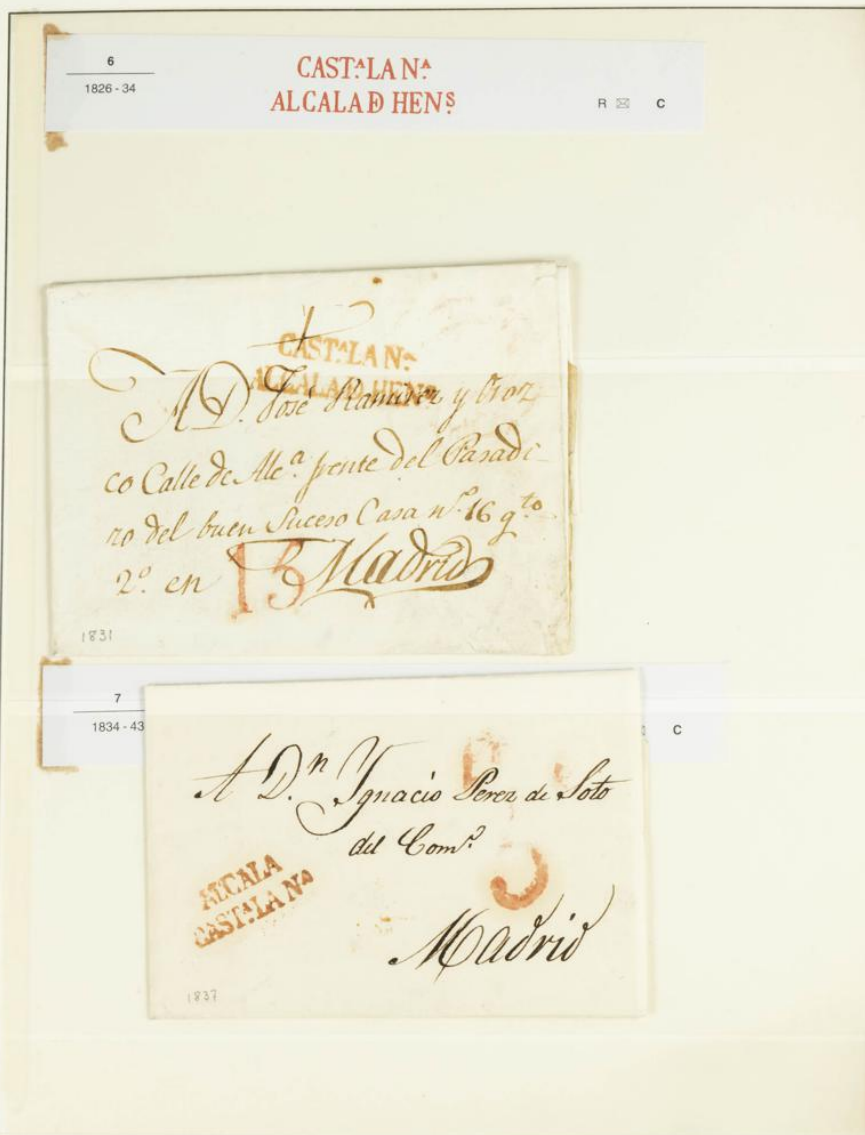 6
1826 - 34
CASTᴬ LA Nᴬ
ALCALA Đ HENˢ
R ✉ C
CASTᴬ LA Nᴬ
ALCALA Đ HENˢ
A D. José Ramirez y Oroz
co Calle de Alcª. frente del Parade
ro del buen Suceso Casa nº. 16 qto
2º. en Madrid
15
1831
7
1834 - 43
C
A D.ⁿ Ygnacio Perez de Soto
del Comº.
ALCALA
CASTᴬ LA Nᴬ
Madrid
1837